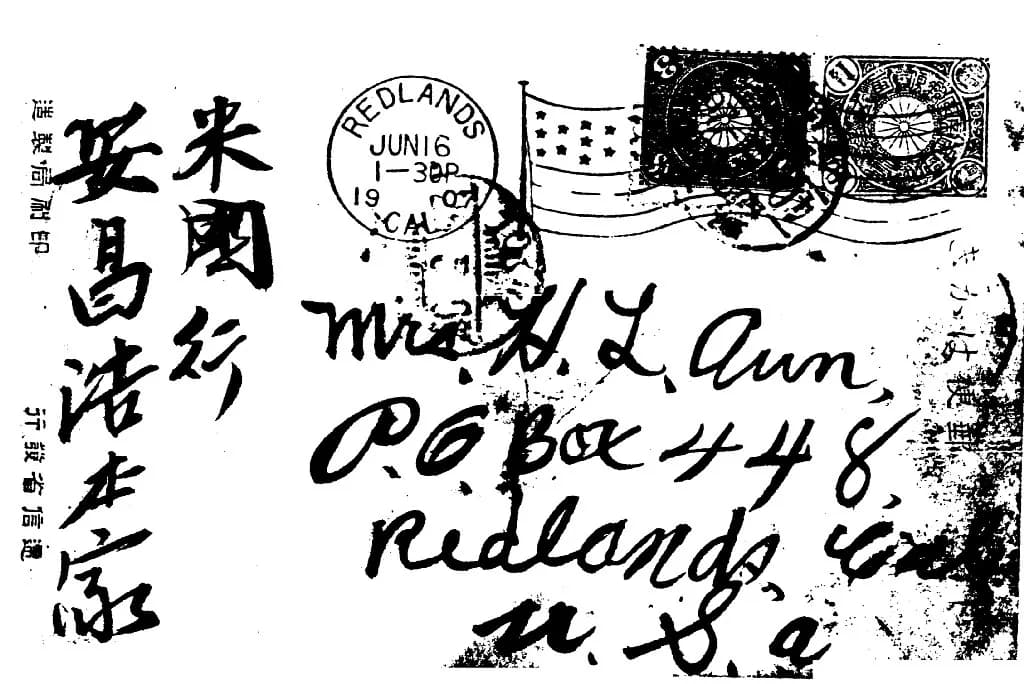 米國行
安昌浩本家
遞信省發行
印刷局製造
REDLANDS
JUN16
1-30P
19
CAL.
郵便はがき
Mrs. H. L. Aun,
P.O Box 448,
Redlands, Cal
U. S. a